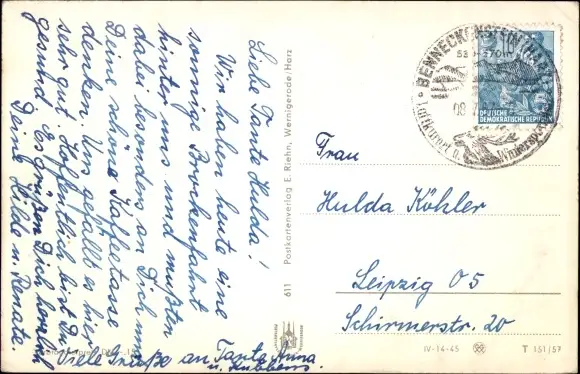 Liebe Tante Hulda!
Wir haben heute eine
sonnige Brockenfahrt
hinter uns und mußten
dabei besonders an Dich und
Deine schöne Kaffeetasse
denken. Uns gefällt es hier
sehr gut. Hoffentlich bist Du
gesund. Es grüßen Dich herzlich
Deine Hilde u. Renate.
Viele Grüße an Tante Anna
u.
611 Postkartenverlag E. Riehn, Wernigerode/Harz
BENNECKENSTEIN (HARZ)
Luftkurort u. Wintersport
DEUTSCHE
DEMOKRATISCHE REPUBLIK
Frau
Hulda Köhler
Leipzig O5
Schirmerstr. 20
IV-14-45
T 151/57